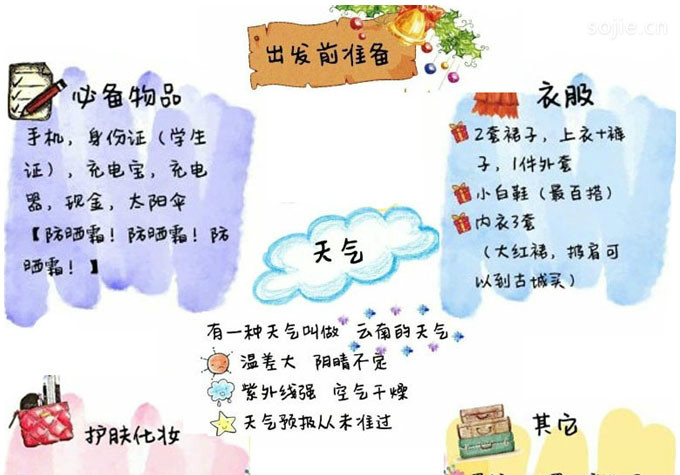 sojie.cn
出发前准备
必备物品
手机，身份证（学生
证），充电宝，充电
器，现金，太阳伞
【防晒霜！防晒霜！防
晒霜！】
衣服
2套裙子，上衣+裤
子，1件外套
小白鞋（最百搭）
内衣3套
（大红裙，披肩可
以到古城买）
天气
有一种天气叫做 云南的天气
温差大 阴晴不定
紫外线强 空气干燥
天气预报从未准过
护肤化妆
其它